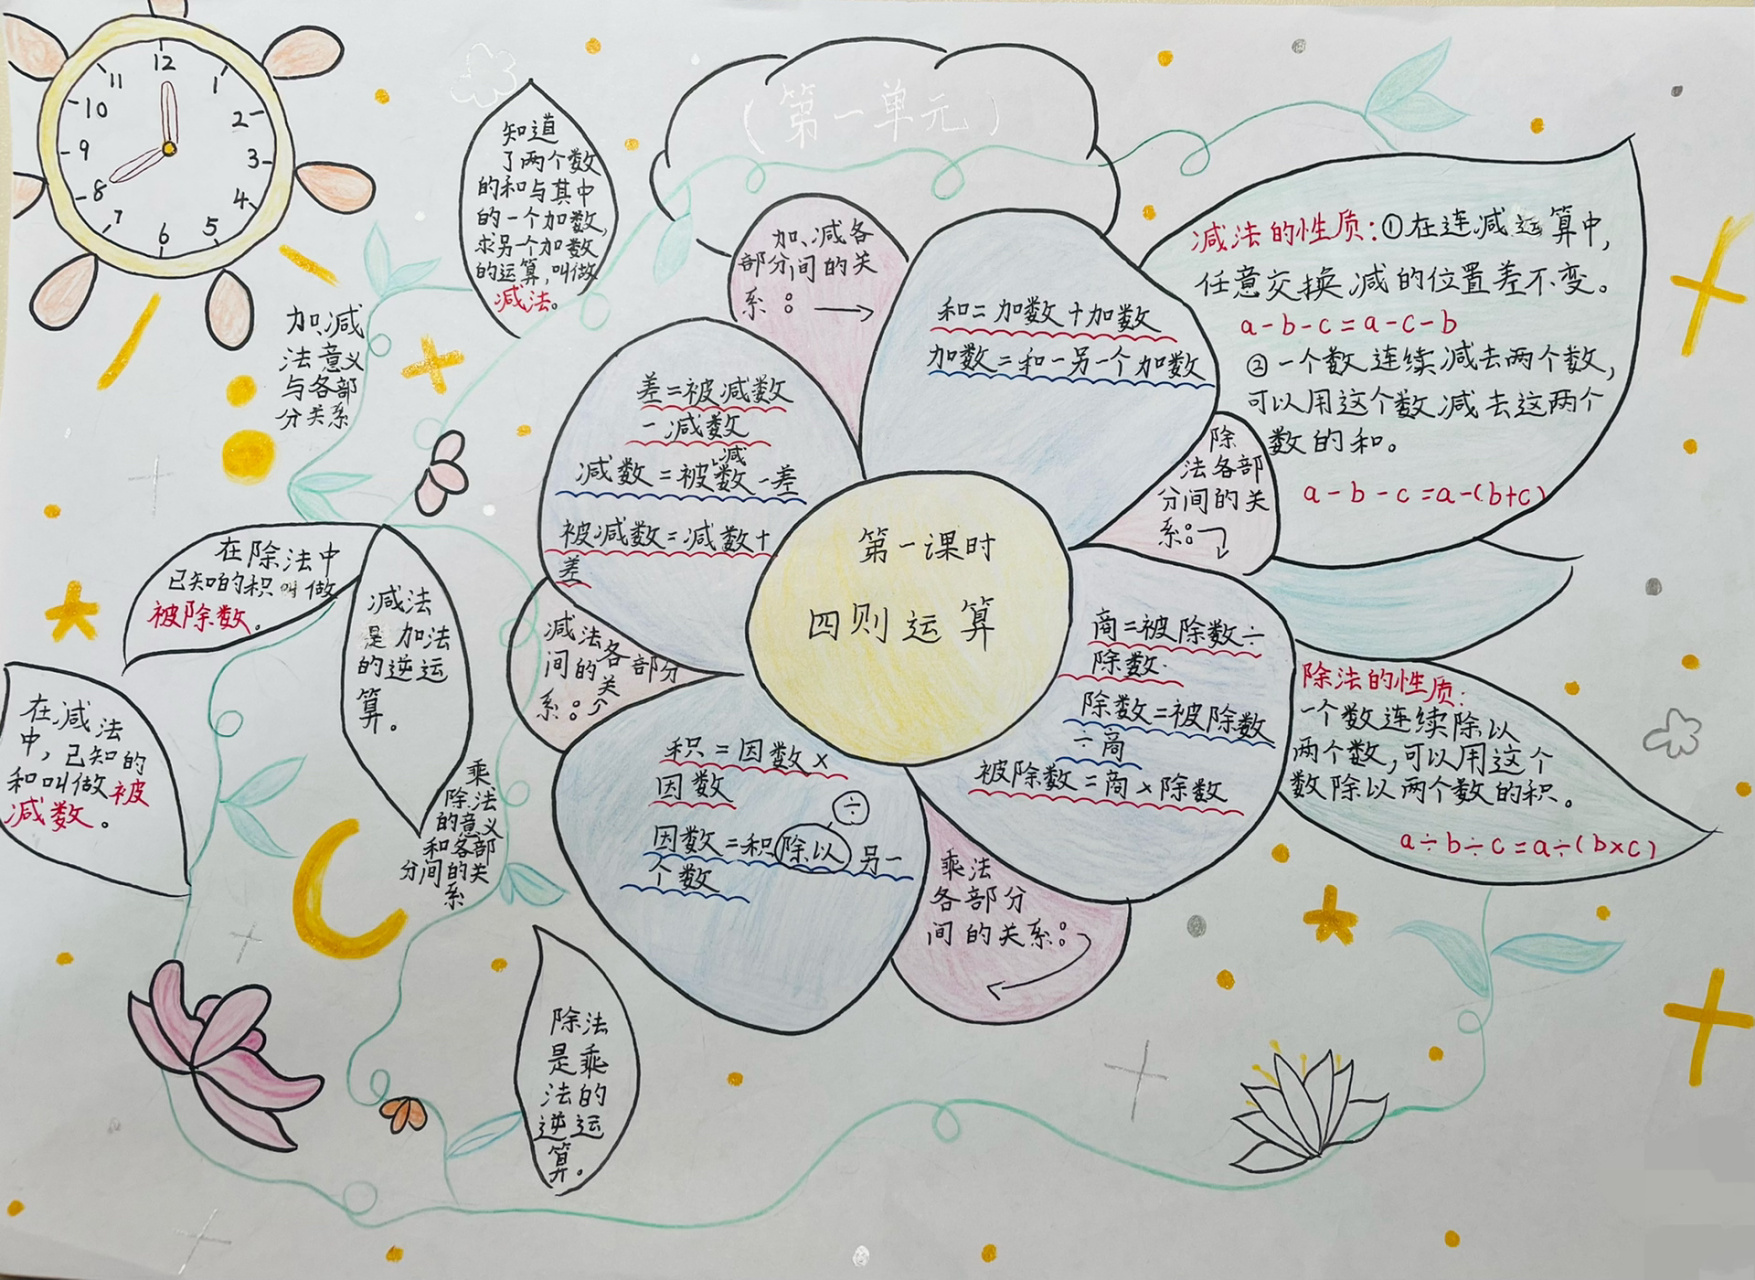 12
1
2
3
4
5
6
7
8
9
10
11
(第一单元)
知道
了两个数
的和与其中
的一个加数,
求另一个加数
的运算,叫做
减法。
加、减
法意义
与各部
分关系
加、减各
部分间的关
系:→
和=加数+加数
加数=和-另一个加数
减法的性质:①在连减运算中,
任意交换减的位置差不变。
a-b-c=a-c-b
②一个数连续减去两个数,
可以用这个数减去这两个
数的和。
a-b-c=a-(b+c)
差=被减数
-减数
减数=被减数-差
被减数=减数+
差
除
法各部
分间的关
系:
第一课时
四则运算
在除法中
已知的积叫做
被除数。
减法
是加法
的逆运
算。
减法各部分
间的关
系:
商=被除数÷
除数.
除数=被除数
÷商
被除数=商×除数
除法的性质:
一个数连续除以
两个数,可以用这个
数除以两个数的积。
a÷b÷c=a÷(b×c)
在减法
中,已知的
和叫做被
减数。
乘
除法
的意义
和各部
分间的关
系
积=因数×
因数
÷
因数=积除以另一
个数
乘法
各部分
间的关系:
除法
是乘
法的
逆运
算。